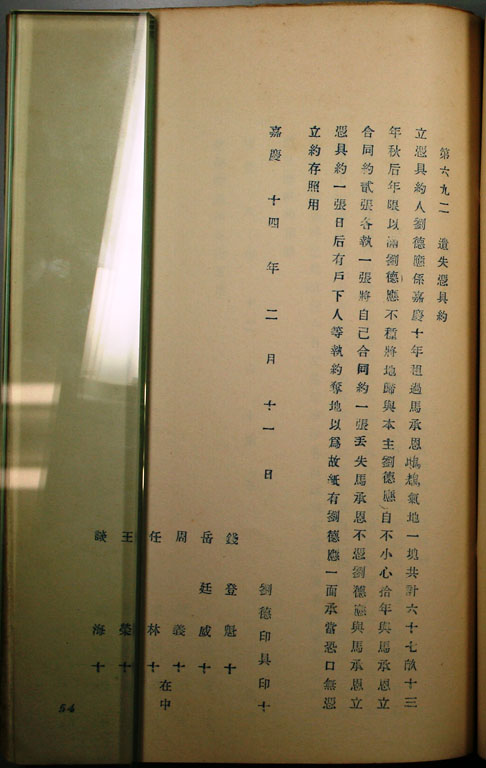 第六九二　遺失憑具約
立憑具約人劉德應係嘉慶十年租過馬承恩地一塊共計六十七畝十三
年秋后年限以滿劉德應不種將地歸與本主劉德應自不小心拾年與馬承恩立
合同約貳張各執一張將自己合同約一張丟失馬承恩不憑劉德應與馬承恩立
憑具約一張日后有戶下人等執約奪地以為故紙有劉德應一面承當恐口無憑
立約存照用
嘉慶十四年二月十一日
劉德印具印十
錢登魁十
岳廷威十
周義十
任林十
王榮十
海十
在中
54